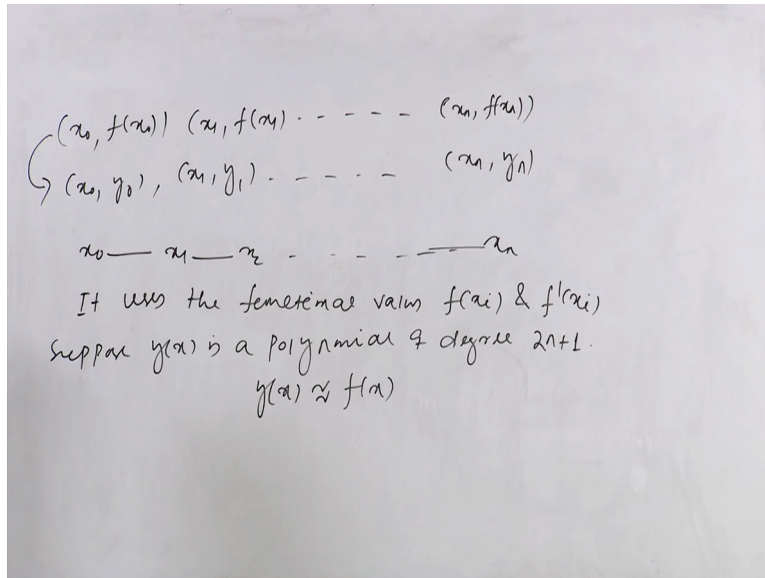 (x₀, f(x₀)) (x₁, f(x₁) . - - - - (xₙ, f(xₙ))
(x₀, y₀), (x₁, y₁) . - - . - (xₙ, yₙ)
x₀ — x₁ — x₂ - . - . - — xₙ
It uses the values f(xi) & f'(xi)
Suppose y(x) is a polynmial of degree 2n+1.
y(x) ≈ f(x)